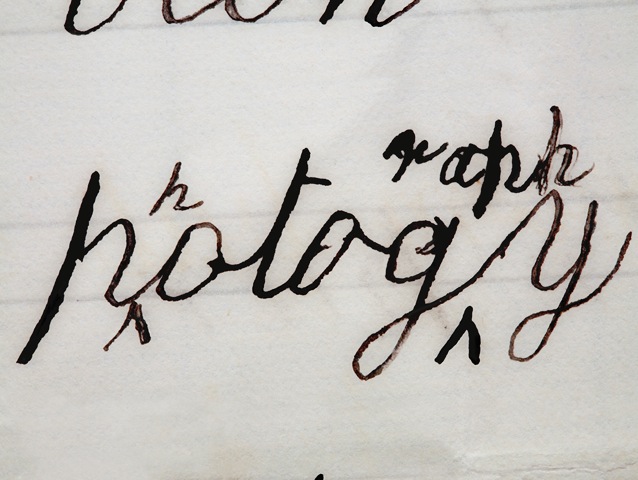 h raph
potogy